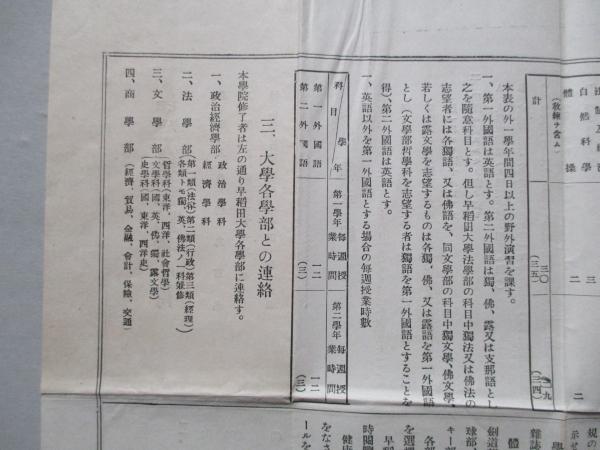 自然科學 二 二
體操 三
(敎練ヲ含ム)
計 三〇 (三五) 二九 (三四)
本表の外一學年間四日以上の野外演習を課す。
一、第一外國語は英語とす。第二外國語は獨、佛、露又は支那語とし
之を隨意科目とす。但し早稻田大學法學部の科目中獨法又は佛法の
志望者には各獨語、又は佛語を、同文學部の科目中獨文學、佛文學、
若しくは露文學を志望するものは各獨、佛、又は露語を第一外國語
とし(文學部哲學科を志望する者は獨語を第一外國語とすることを
得)、第二外國語は英語とす。
一、英語以外を第一外國語とする場合の每週授業時數
科目/學年 第一學年每週授業時間 第二學年每週授業時間
第一外國語 一二 一二
第二外國語 (三) (三)
三、大學各學部との連絡
本學院修了者は左の通り早稻田大學各學部に連絡す。
一、政治經濟學部 政治學科
經濟學科
二、法學部 第一類(法律)第二類(行政)第三類(經理)
各類トモ獨、英、佛法ノ一科兼修
三、文學部 哲學科(東洋、西洋、社會哲學)
文學科(國、英、佛、獨、露文學)
史學科(國、東洋、西洋史)
四、商學部 (經濟、貿易、金融、會計、保險、交通)